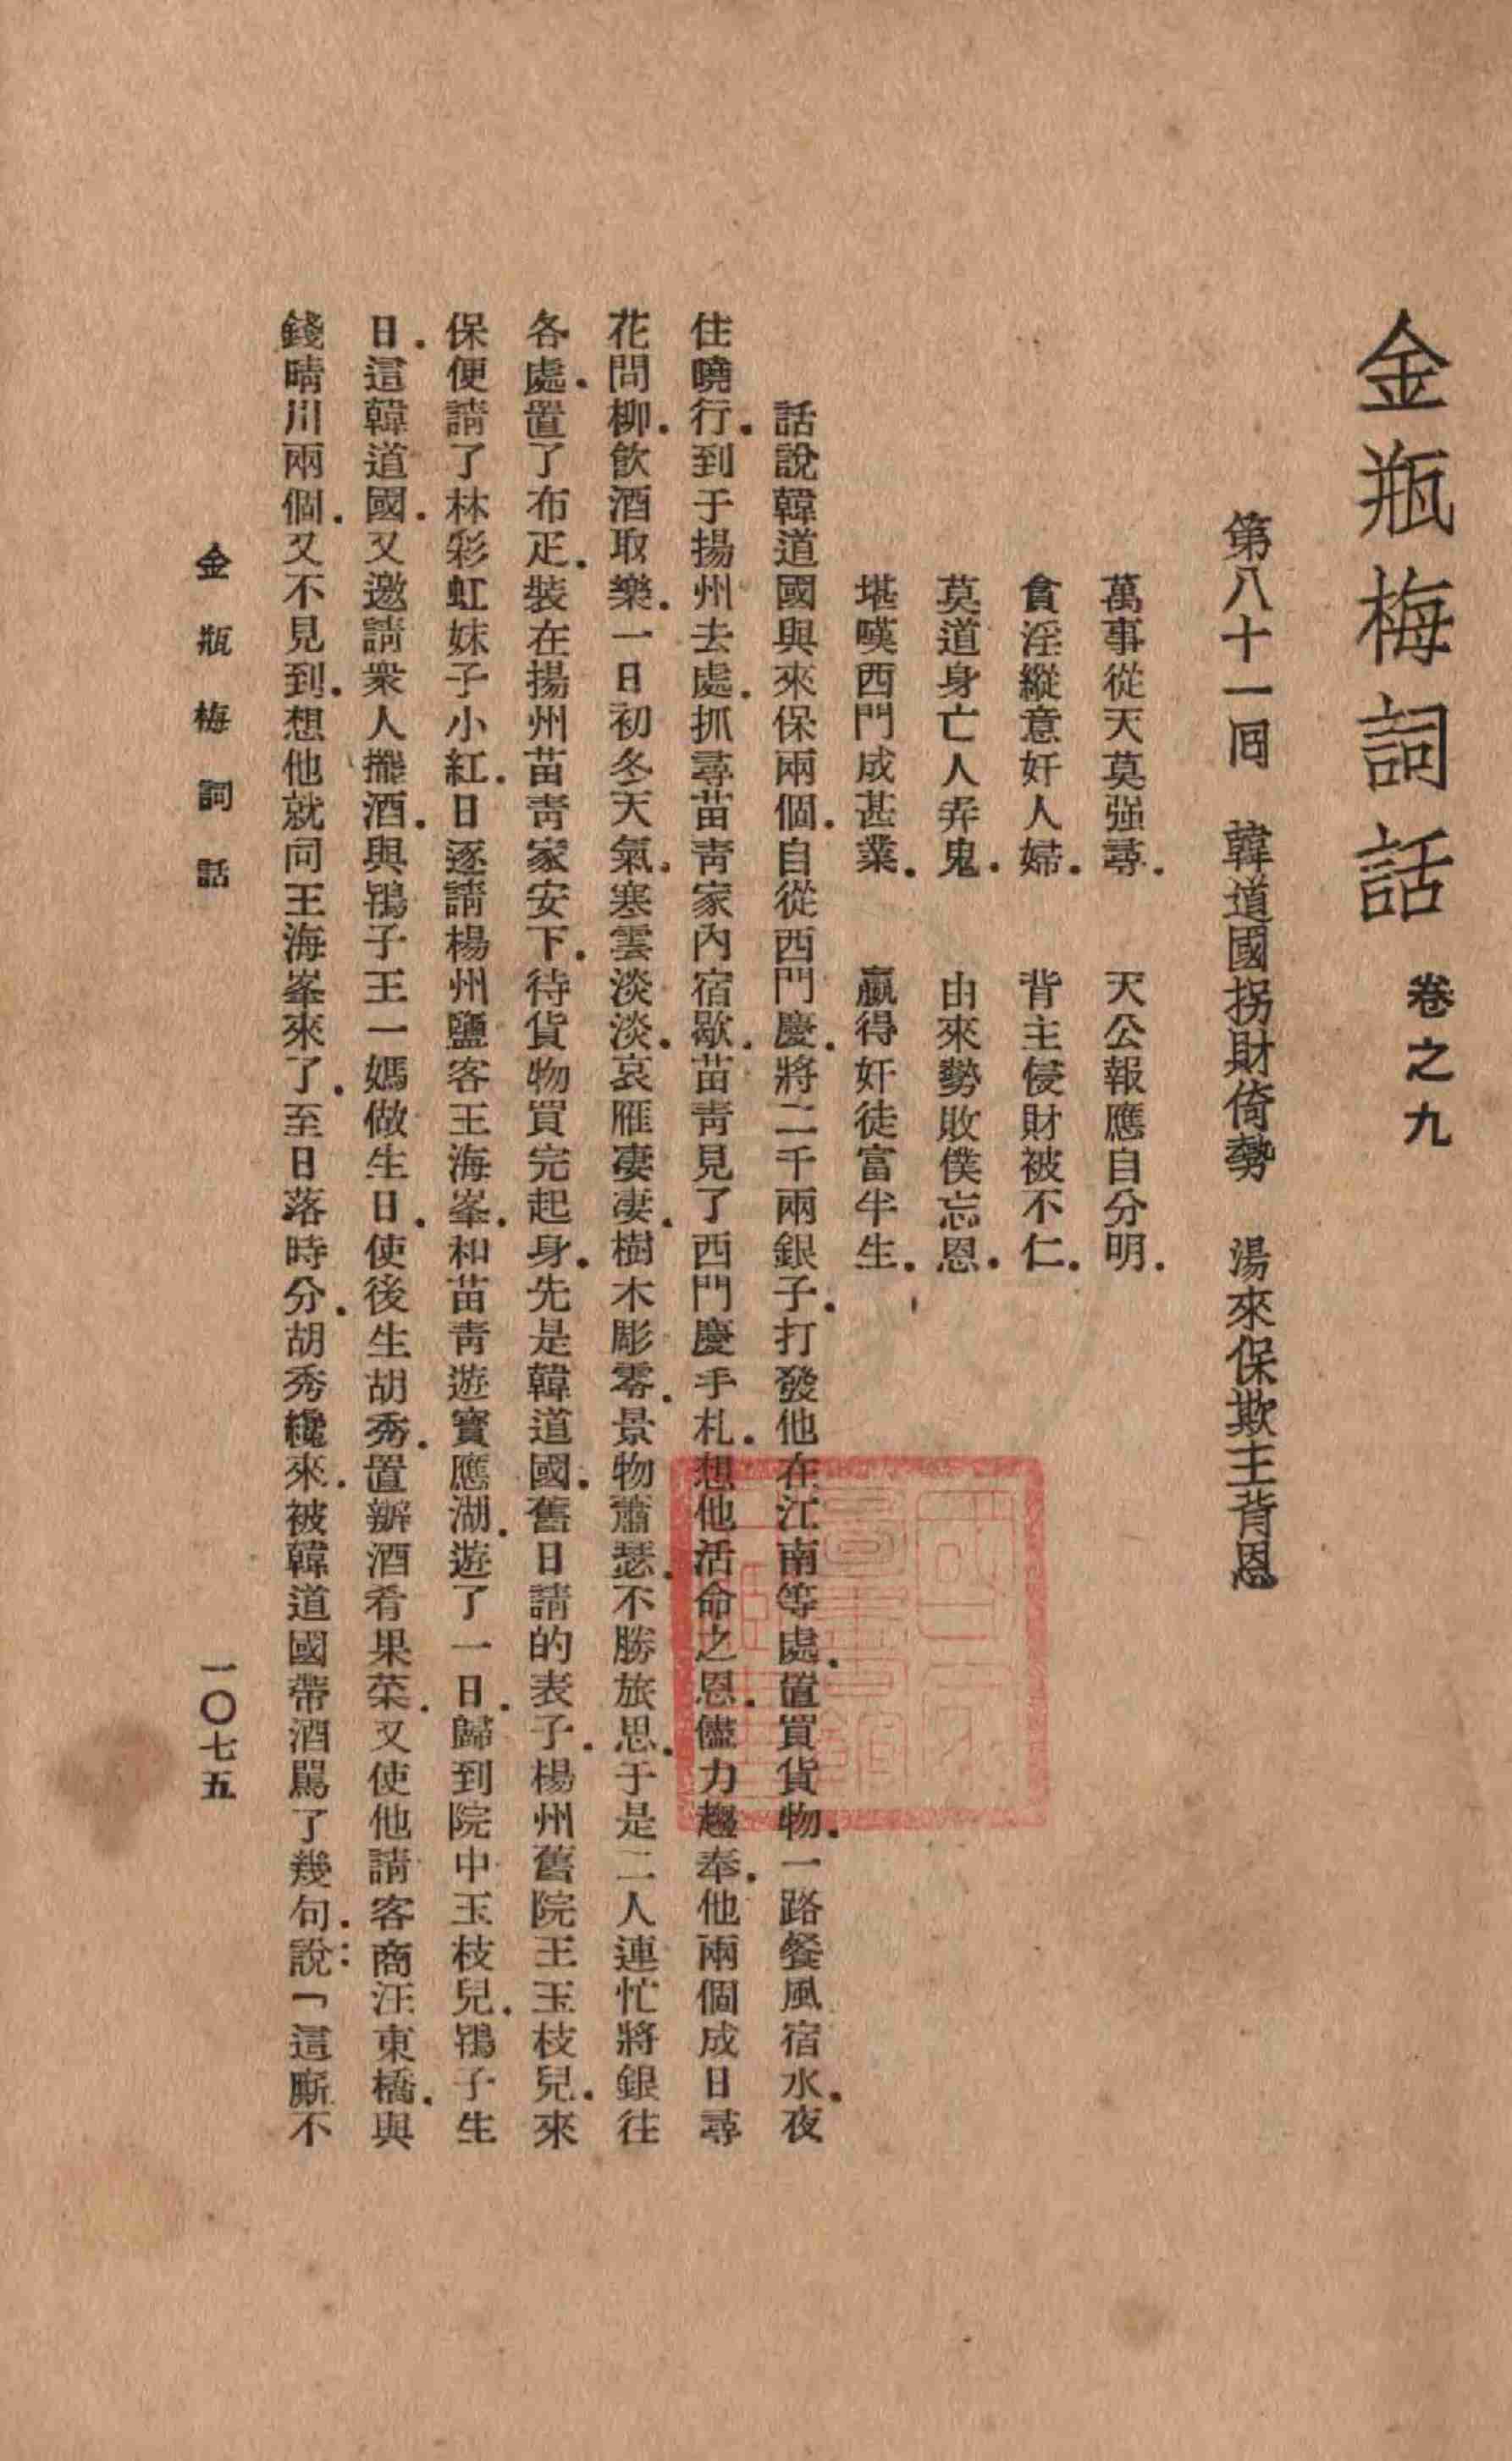 金瓶梅詞話 卷之九
第八十一回 韓道國拐財倚勢 湯來保欺主背恩
萬事從天莫强尋. 天公報應自分明.
貪淫縱意奸人婦. 背主侵財被不仁.
莫道身亡人弄鬼. 由來勢敗僕忘恩.
堪嘆西門成甚業. 贏得奸徒富半生.
話說韓道國與來保兩個.自從西門慶.將二千兩銀子.打發他在江南等處.置買貨物.一路餐風宿水.夜
住曉行.到于揚州去處.抓尋苗靑家內宿歇.苗靑見了西門慶手札.想他活命之恩.儘力趨奉.他兩個成日尋
花問柳.飲酒取樂.一日初冬天氣.寒雲淡淡.哀雁凄凄.樹木彫零.景物蕭瑟.不勝旅思.于是二人連忙將銀往
各處.置了布疋.裝在揚州苗靑家安下.待貨物買完起身.先是韓道國.舊日請的表子.楊州舊院王玉枝兒.來
保便請了林彩虹妹子小紅.日逐請楊州鹽客王海峯.和苗靑遊寶應湖.遊了一日.歸到院中玉枝兒.鴇子生
日.這韓道國.又邀請衆人擺酒.與鴇子王一媽做生日.使後生胡秀.置辦酒肴果菜.又使他請客商汪東橋.與
錢晴川兩個.又不見到.想他就同王海峯來了.至日落時分.胡秀纔來.被韓道國帶酒駡了幾句.說:「這廝不
金瓶梅詞話
一〇七五